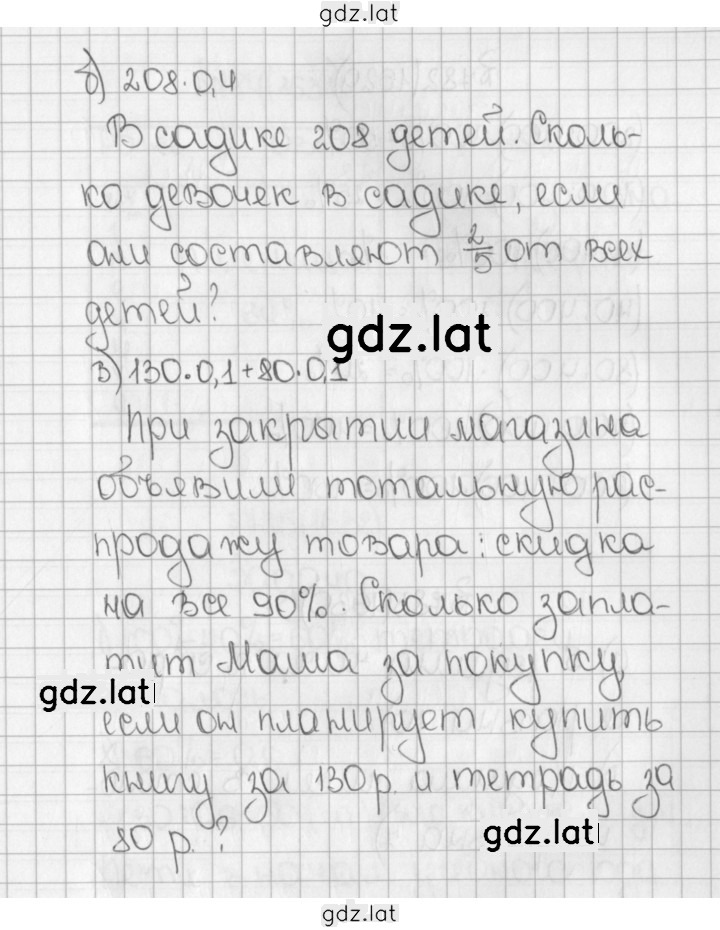 gdz.lat
б) 208·0,4
В садике 208 детей. Сколь-
ко девочек в садике, если
они составляют 2/5 от всех
детей?
gdz.lat
в) 130·0,1+80·0,1
При закрытии магазина
объявили тотальную рас-
продажу товара: скидка
на все 90%. Сколько запла-
тит Маша за покупку,
gdz.lat
если он планирует купить
книгу за 130 р. и тетрадь за
80 р.?
gdz.lat
gdz.lat